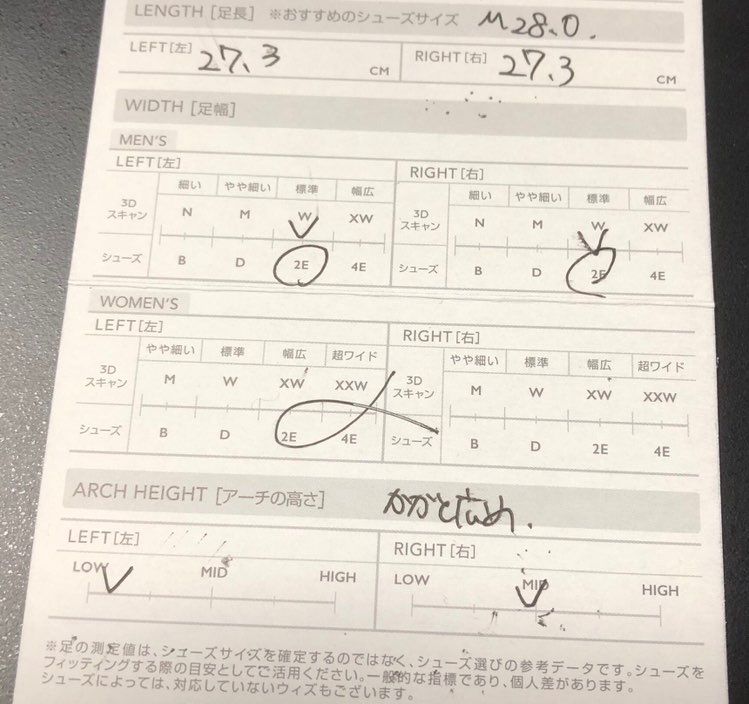 LENGTH [足長] ※おすすめのシューズサイズ M28.0.
LEFT[左] 27.3 CM RIGHT[右] 27.3 CM
WIDTH [足幅]
MEN'S
LEFT[左]
細い やや細い 標準 幅広
3Dスキャン N M W XW
シューズ B D 2E 4E
RIGHT[右]
細い やや細い 標準 幅広
3Dスキャン N M W XW
シューズ B D 2E 4E
WOMEN'S
LEFT[左]
やや細い 標準 幅広 超ワイド
3Dスキャン M W XW XXW
シューズ B D 2E 4E
RIGHT[右]
やや細い 標準 幅広 超ワイド
3Dスキャン M W XW XXW
シューズ B D 2E 4E
ARCH HEIGHT [アーチの高さ] かかと広め.
LEFT[左]
LOW MID HIGH
RIGHT[右]
LOW MID HIGH
※足の測定値は、シューズサイズを確定するのではなく、シューズ選びの参考データです。シューズを
フィッティングする際の目安としてご活用ください。一般的な指標であり、個人差があります。
シューズによっては、対応していないウィズもございます。